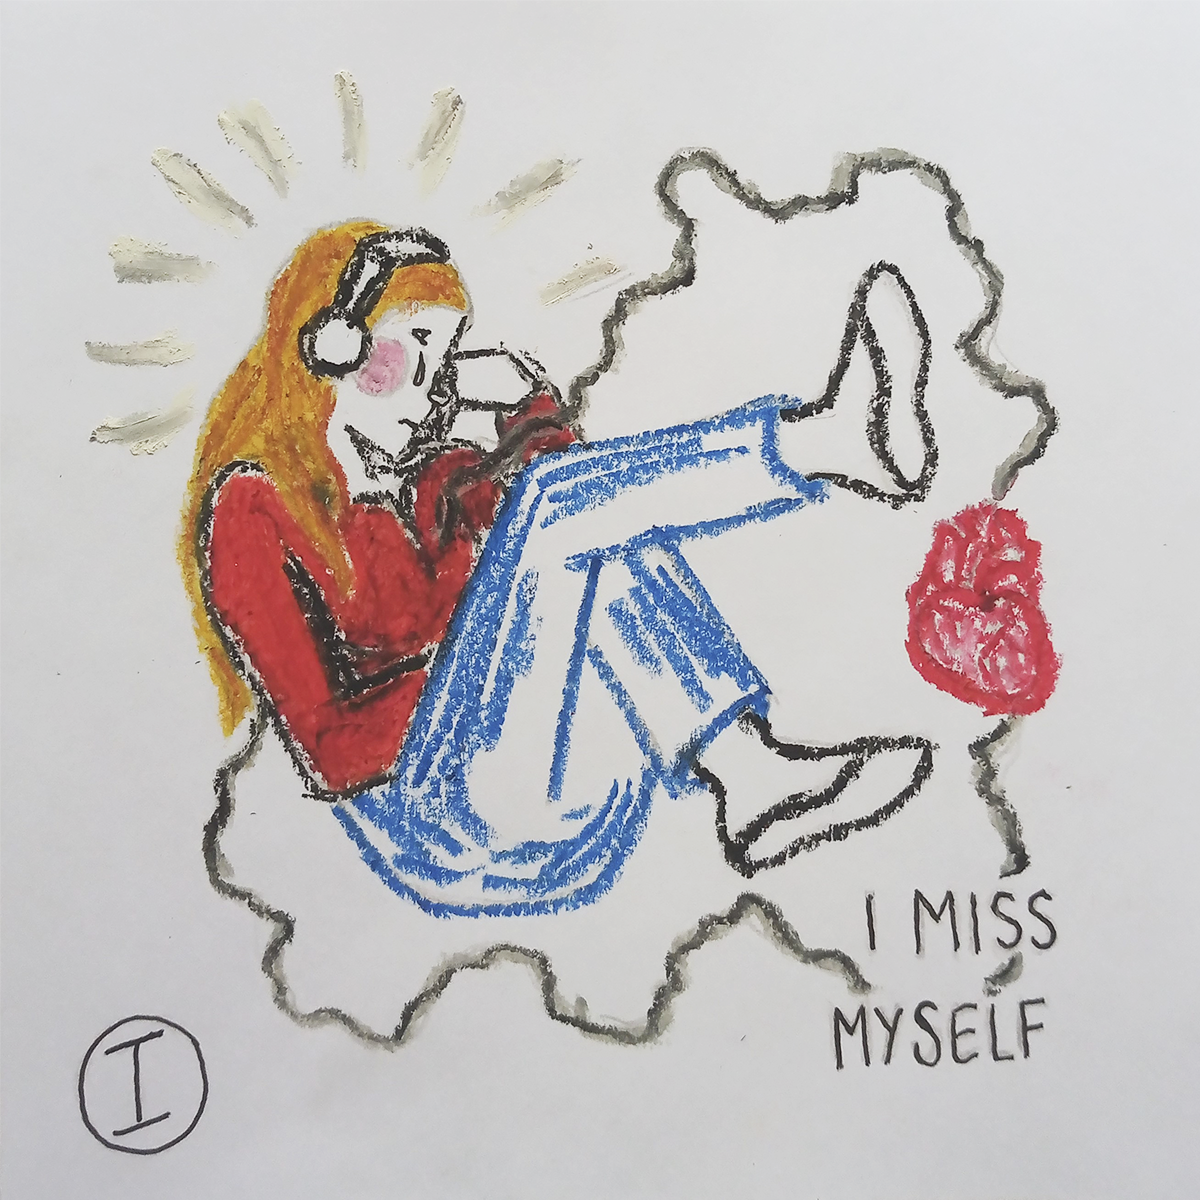 I MISS
MYSELF
I